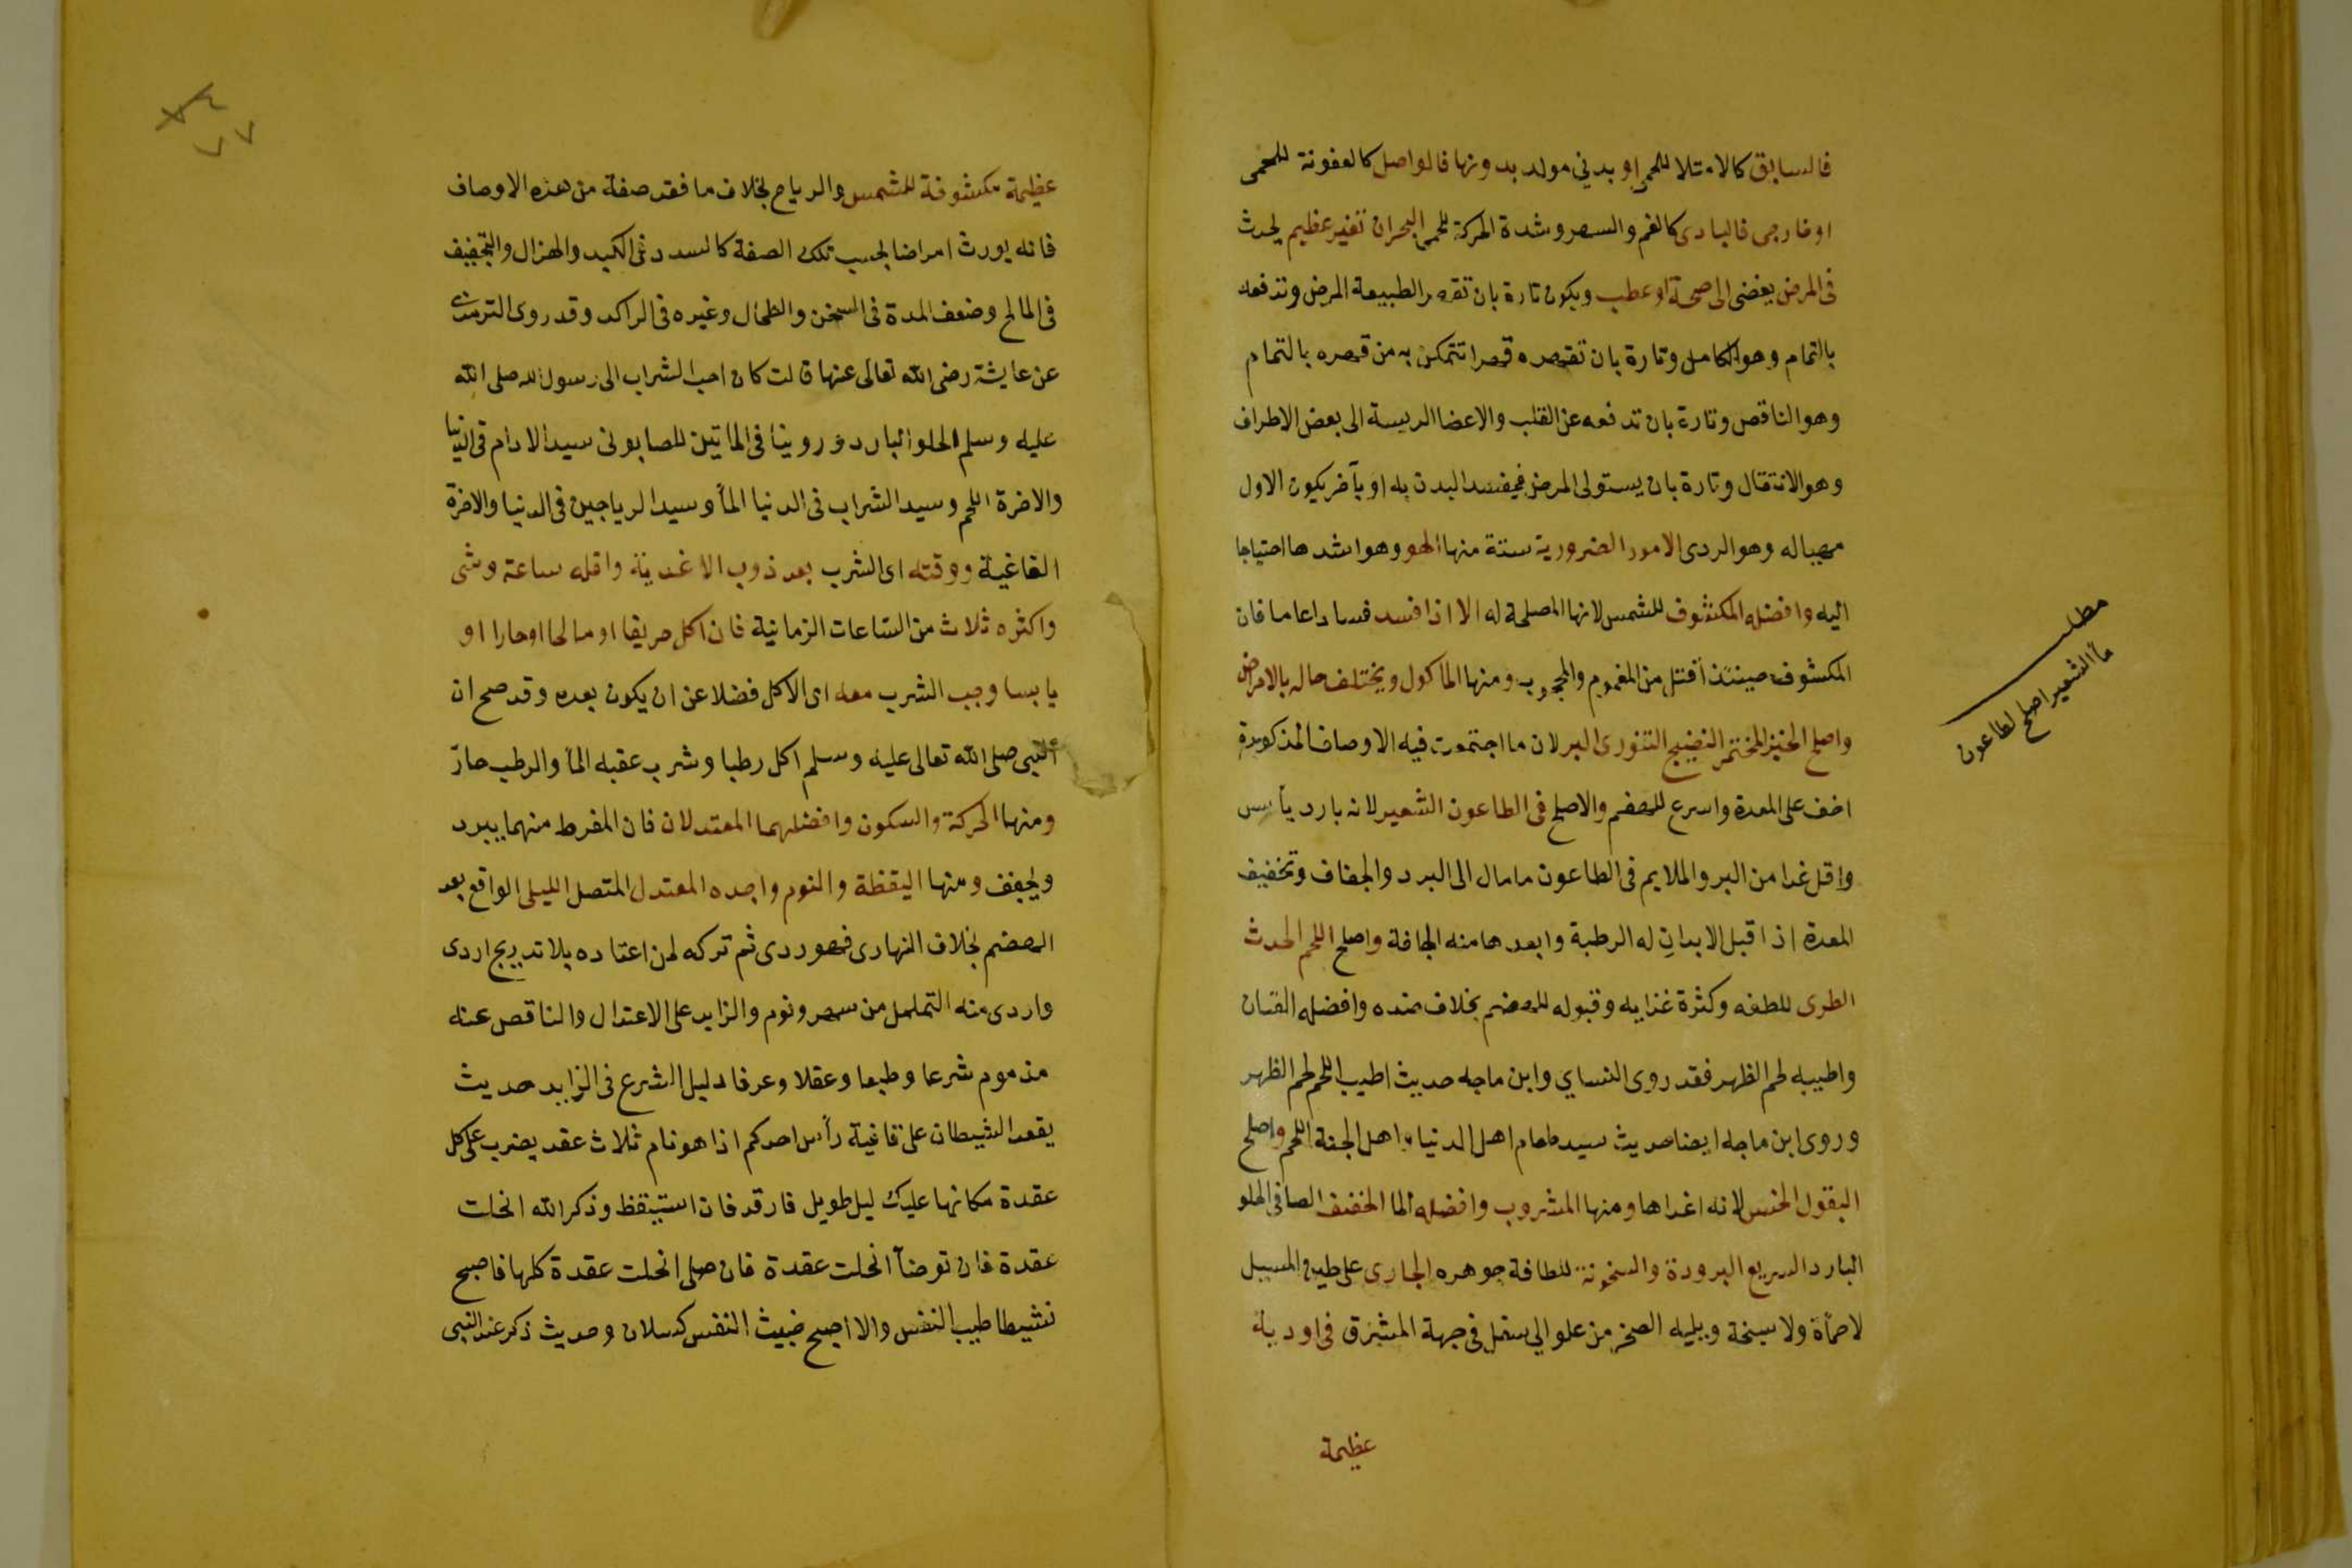 فالسابق كالامتلا للحمى او بدني مولد بدونها فالواصل كالعفونة للحمى
او خارجى فالبادى كالغم والسهر وشدة الحركة للحمى البحران تغير عظيم يحدث
فى المرض يفضى الى صحة او عطب ويكون تارة بان تقهر الطبيعة المرض وتدفعه
بالتمام وهو الكامل وتارة بان تقهره قهرا تتمكن به من قهره بالتمام
وهو الناقص وتارة بان تدفعه عن القلب والاعضا الريسة الى بعض الاطراف
وهو الانتقال وتارة بان يستولى المرض فيفسد البدن به او بآخر يكون الاول
مهيا له وهو الردى الامور الضرورية ستة منها الهو وهو اشدها احتياجا
اليه وافضله المكشوف للشمس لانها المصلحة له الا اذا فسد فسادا عاما فان
المكشوف حينئذ أقتل من المغموم والمحجوب ومنها الماكول ويختلف حاله بالامراض
واصلح الخبز المختمر النضيج التنورى البر لان ما اجتمعت فيه الاوصاف المذكورة
اخف على المعدة واسرع للهضم والاصلح فى الطاعون الشعير لانه بارد يأبس
واقل غدا من البر والملايم فى الطاعون ما مال الى البرد والجفاف وتخفيف
المعدة اذا قبل الابدان له الرطبة وابعدها منه الجافة واصلح اللحم الحدث
الطرى للطفه وكثرة غذايه وقبوله للهضم بخلاف ضده وافضله الضان
واطيبه لحم الظهر فقد روى النساي وابن ماجه حديث اطيب اللحم لحم الظهر
وروى ابن ماجه ايضا حديث سيد طعام اهل الدنيا واهل الجنة اللحم واصلح
البقول الخس لانه اغداها ومنها المشروب وافضله الما الخفيف الصافى الحلو
البارد السريع البرودة والسخونة للطافة جوهره الجارى على طين المسيل
لا حمأة ولا سبخة ويليه الصخر من علو الي سفل فى جهة المشرق فى اودية
عظيمة
مطلب
مآ الشعير اصلح لطاعون
عظيمة مكشوفة للشمس والرياح بخلاف ما فقد صفة من هذه الاوصاف
فانه يورث امراضا بحسب تلك الصفة كالسدد فى الكبد والهزال والتجفيف
فى المالح وضعف المعدة فى السخن والطحال وغيره فى الراكد وقد روى الترمذى
عن عايشة رضى الله تعالى عنها قالت كان احب الشراب الى رسول الله صلى الله
عليه وسلم الحلو البارد وروينا فى الماتين للصابونى سيد الادام فى الدنيا
والاخرة اللحم وسيد الشراب فى الدنيا المأ وسيد الرياحين فى الدنيا والاخرة
الفاغية ووقته اى الشرب بعد ذوب الاغدية واقله ساعة وشى
واكثره ثلاث من الساعات الزمانية فان اكل حريفا او مالحا او حارا او
يابسا وجب الشرب معه اى الاكل فضلا عن ان يكون بعده وقد صح ان
النبى صلى الله تعالى عليه وسلم اكل رطبا وشرب عقبه المأ والرطب حارّ
ومنها الحركة والسكون وافضلهما المعتدلان فان المفرط منهما يبرد
ويجفف ومنها اليقظة والنوم واجده المعتدل المتصل الليلى الواقع بعد
الهضم بخلاف النهارى فهو ردى ثم تركه لمن اعتاده بلا تدريج اردى
واردى منه التململ من سهر ونوم والزايد على الاعتدال والناقص عنه
مذموم شرعا وطبعا وعقلا وعرفا دليل الشرع فى الزايد حديث
يقعد الشيطان على قافية رأس احدكم اذا هو نام ثلاث عقد يضرب على كل
عقدة مكانها عليك ليل طويل فارقد فان استيقظ وذكر الله انحلت
عقدة فان توضأ انحلت عقدة فان صلى انحلت عقدة كلها فاصبح
نشيطا طيب النفس والا اصبح خبيث النفس كسلان وحديث ذكر عند النبى
٧٧